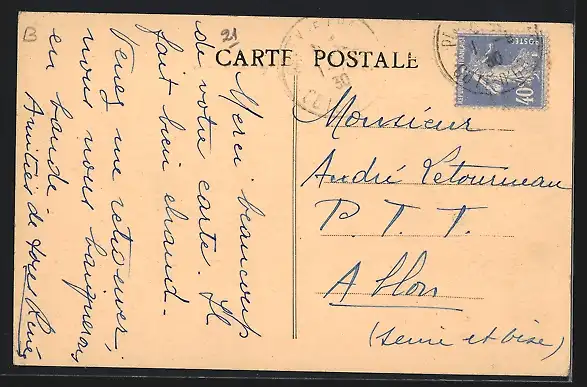 B
21
CARTE POSTALE
Merci beaucoup
de votre carte. Il
fait bien chaud.
Venez me retrouver,
nous nous baignerons
en bande
Amitiés de
30
POSTES
40c
30
Monsieur
André Letourneau
P. T. T.
Ablon
(Seine et Oise)